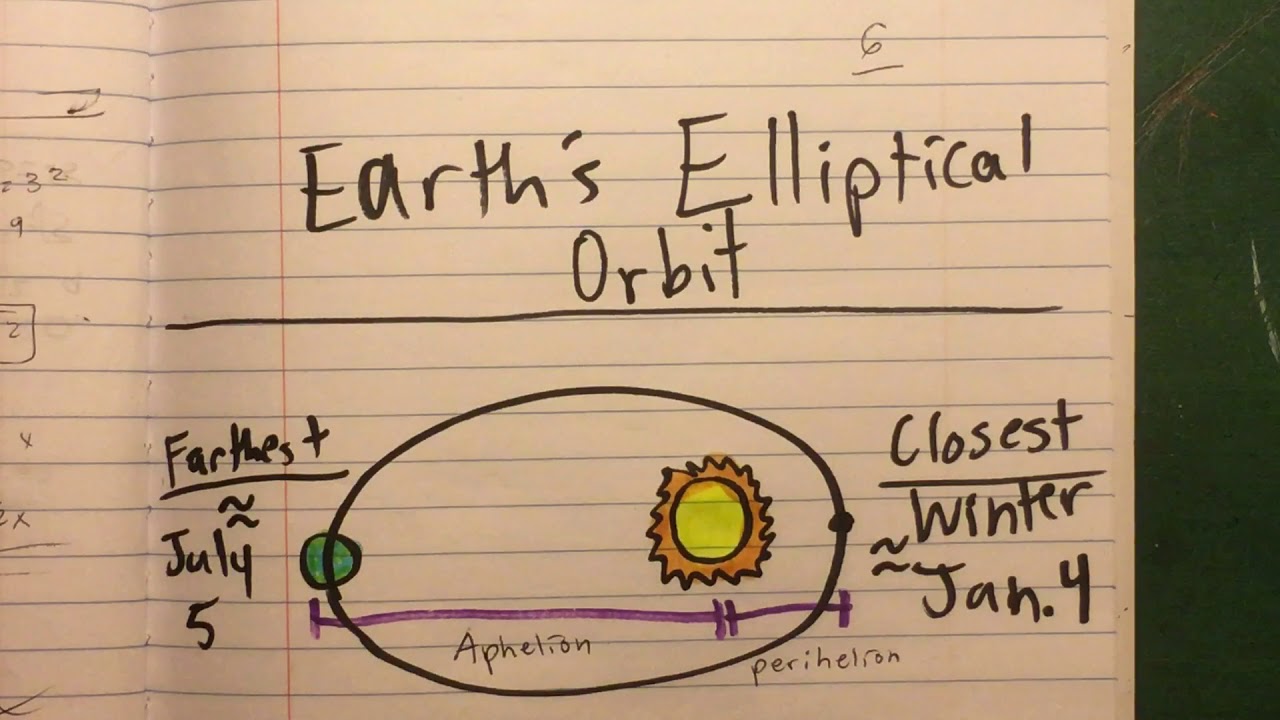 6
= 3²
9
2
x
2x
Earth's Elliptical
Orbit
Farthest
≈
July
5
Closest
Winter
≈ Jan. 4
Aphelion
perihelion